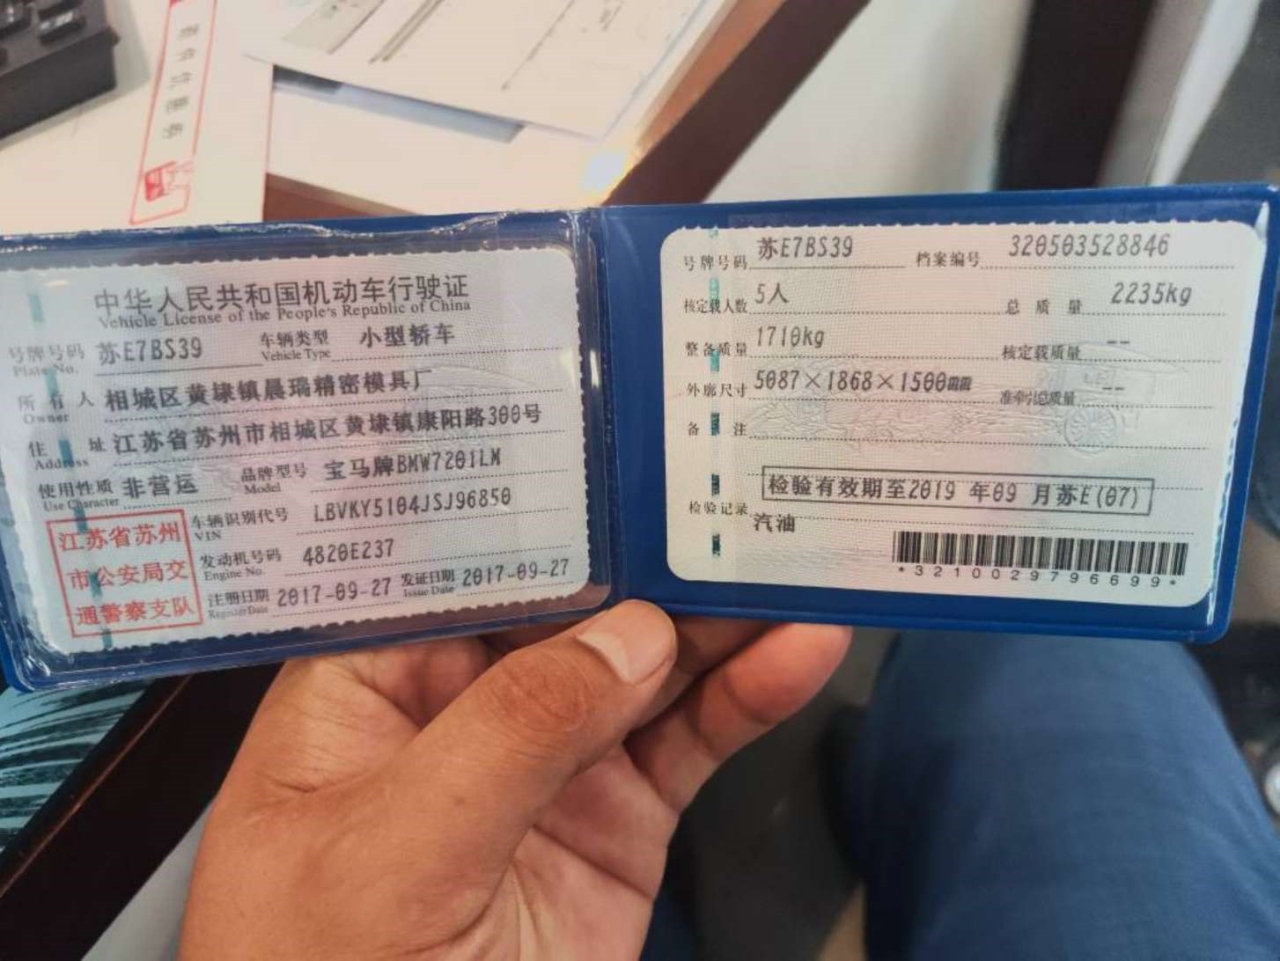 中华人民共和国机动车行驶证
Vehicle License of the People's Republic of China
号牌号码 苏E7BS39 车辆类型 小型轿车
Plate No. Vehicle Type
所有人 相城区黄埭镇晨瑞精密模具厂
Owner
住址 江苏省苏州市相城区黄埭镇康阳路300号
Address
使用性质 非营运 品牌型号 宝马牌BMW7201LM
Use Character Model
江苏省苏州
市公安局交
通警察支队
车辆识别代号 LBVKY5104JSJ96850
VIN
发动机号码 4820E237
Engine No.
注册日期 2017-09-27 发证日期 2017-09-27
Register Date Issue Date
号牌号码 苏E7BS39 档案编号 320503528846
核定载人数 5人 总质量 2235kg
整备质量 1710kg 核定载质量 --
外廓尺寸 5087×1868×1500mm 准牵引总质量 --
备注
检验有效期至2019 年09 月苏E(07)
检验记录
汽油
*3210029796699*